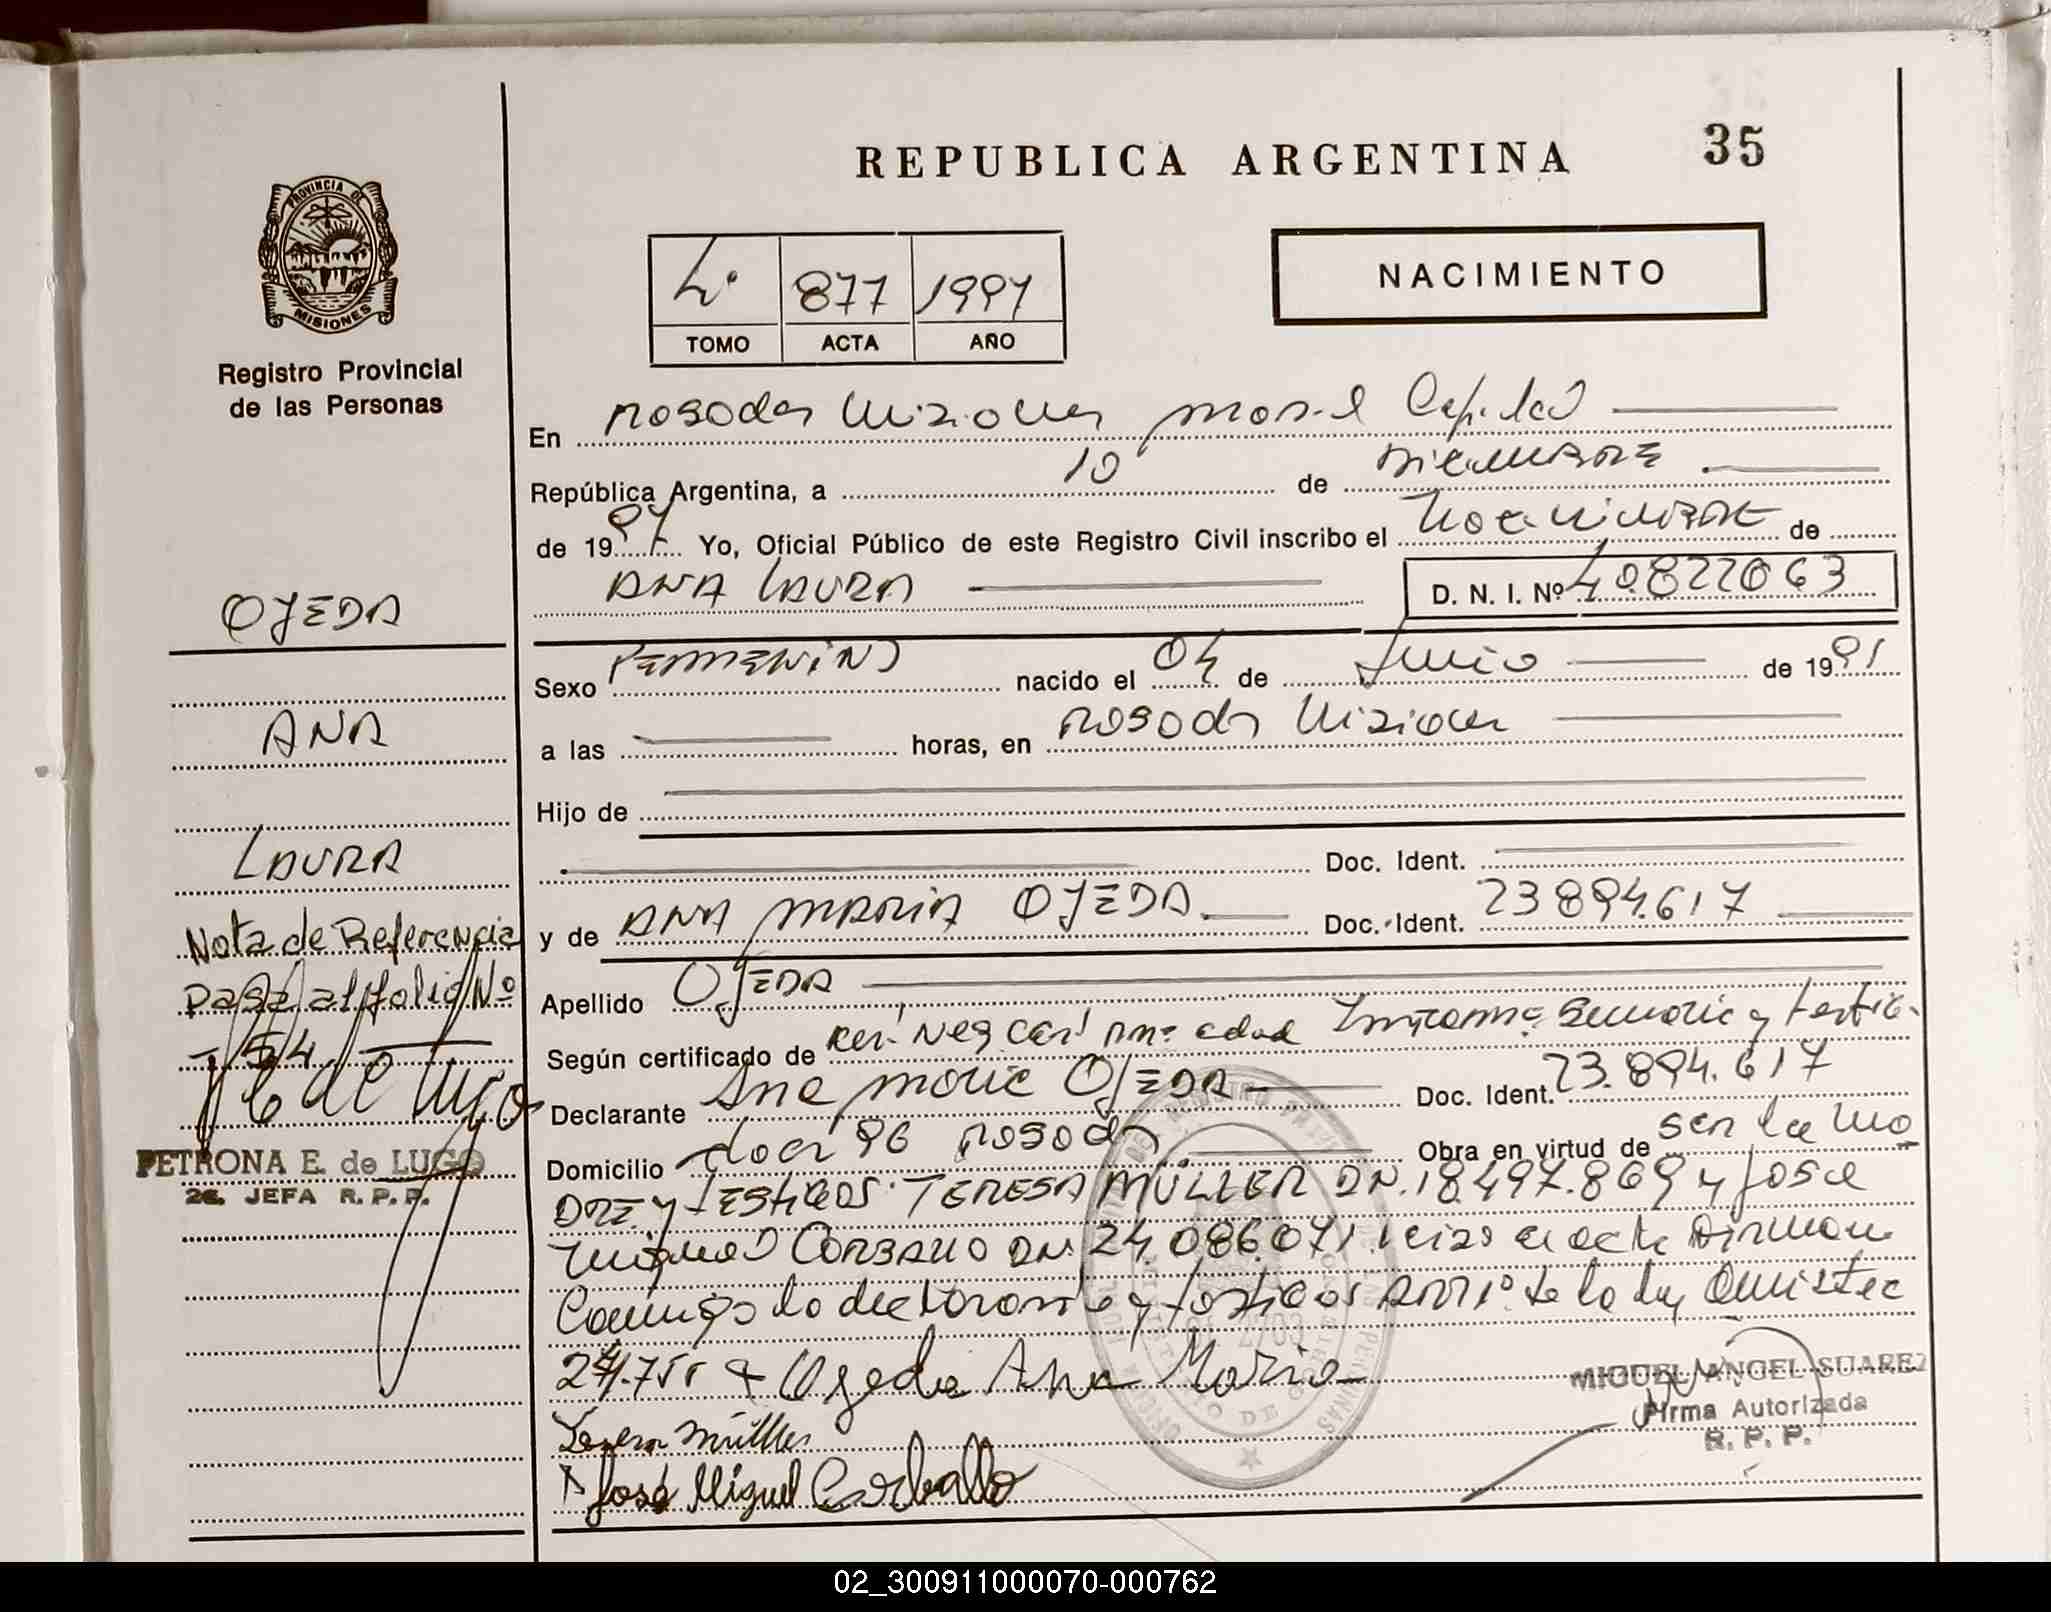 REPUBLICA ARGENTINA
35
PROVINCIA DE
MISIONES
Registro Provincial
de las Personas
4º 877 1997
TOMO ACTA AÑO
NACIMIENTO
En Posadas Misiones Capital
República Argentina, a 10 de Diciembre
de 1997 Yo, Oficial Público de este Registro Civil inscribo el Nacimiento de
ANA LAURA D. N. I. Nº 40.822063
Sexo FEMENINO nacido el 04 de Junio de 1991
a las horas, en Posadas Misiones
Hijo de
Doc. Ident.
y de ANA MARIA OJEDA Doc. Ident. 23894.617
Apellido OJEDA
Según certificado de edad sumaria y
Declarante Ana Maria OJEDA Doc. Ident. 23.894.617
Domicilio 96 Posadas Obra en virtud de ser la Ma
DRE y TESTIGOS: TERESA MÜLLER DN. 18.497.869 y Jose
Miguel DN 24.086.071 acta
Conmigo la declarante y testigos de la ley
24.755 Ojeda Ana Maria
Müller
José Miguel Corballo
MIGUEL ANGEL SUAREZ
Firma Autorizada
R. P. P.
OJEDA
ANA
LAURA
Nota de Referencia
Pasa al folio Nº
- 54 -
PETRONA E. de LUGO
2a. JEFA R. P. P.
02_300911000070-000762